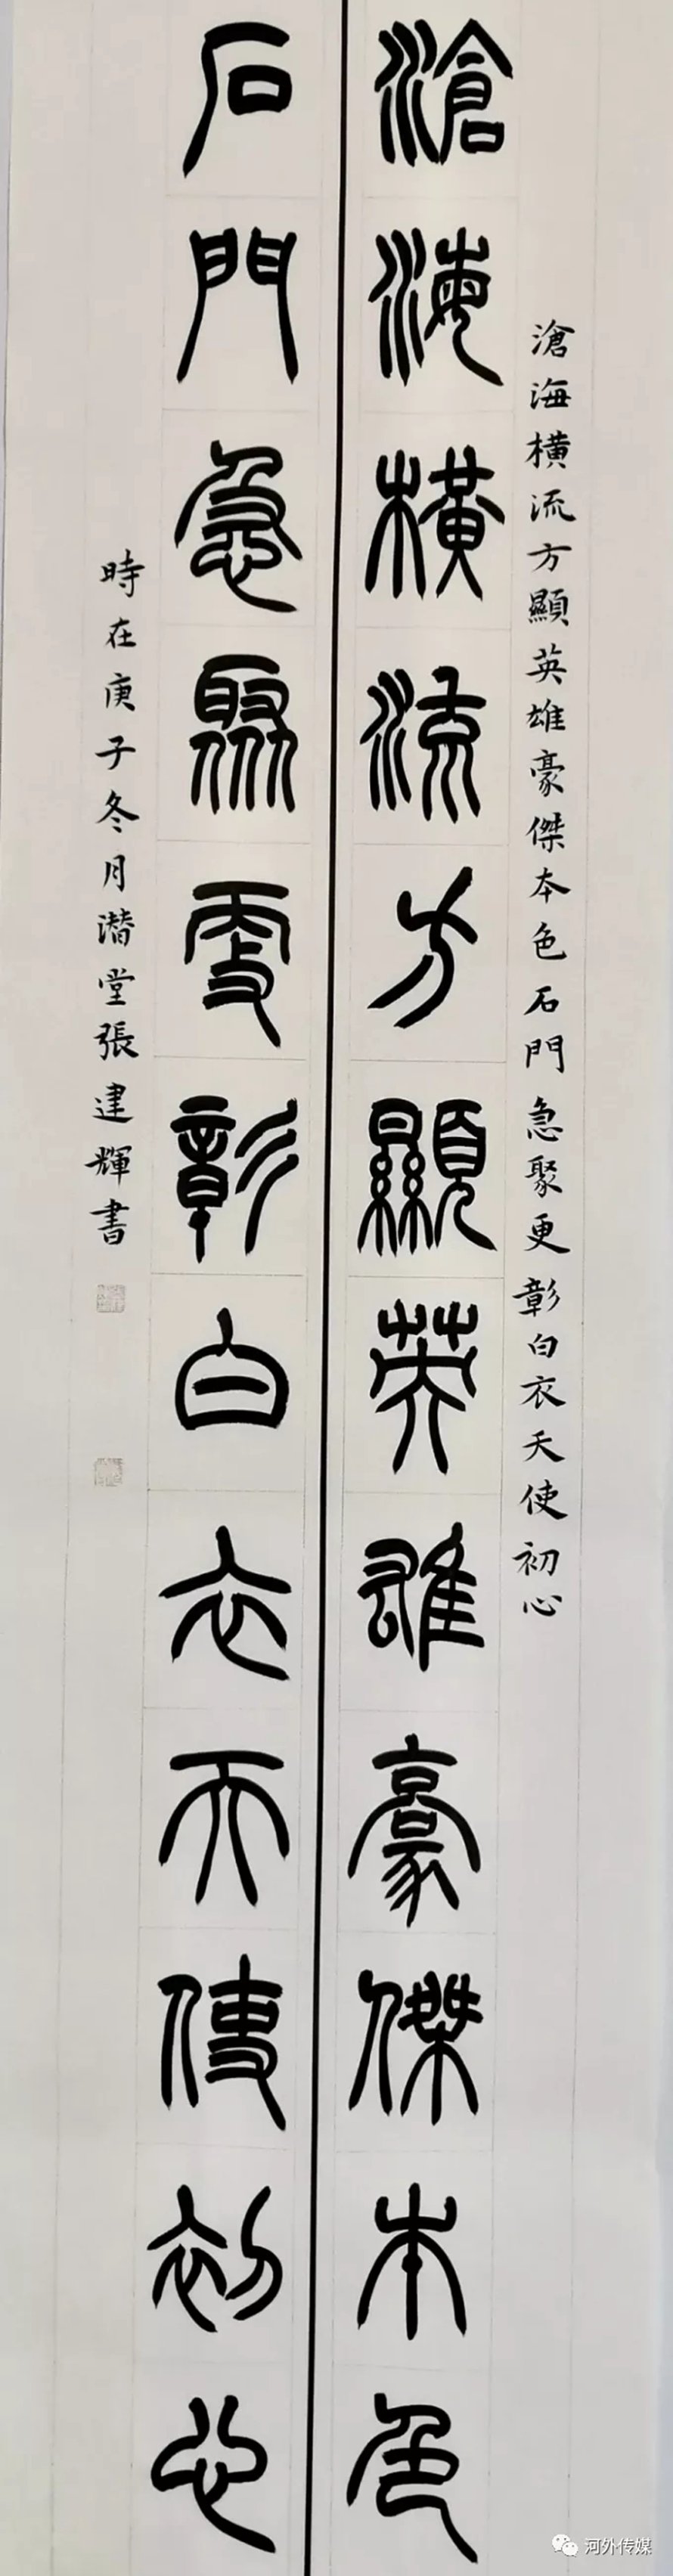 滄海橫流方顯英雄豪傑本色
滄海橫流方顯英雄豪傑本色石門急聚更彰白衣天使初心
石門急聚更彰白衣天使初心
時在庚子冬月潛堂張建輝書
河外传媒